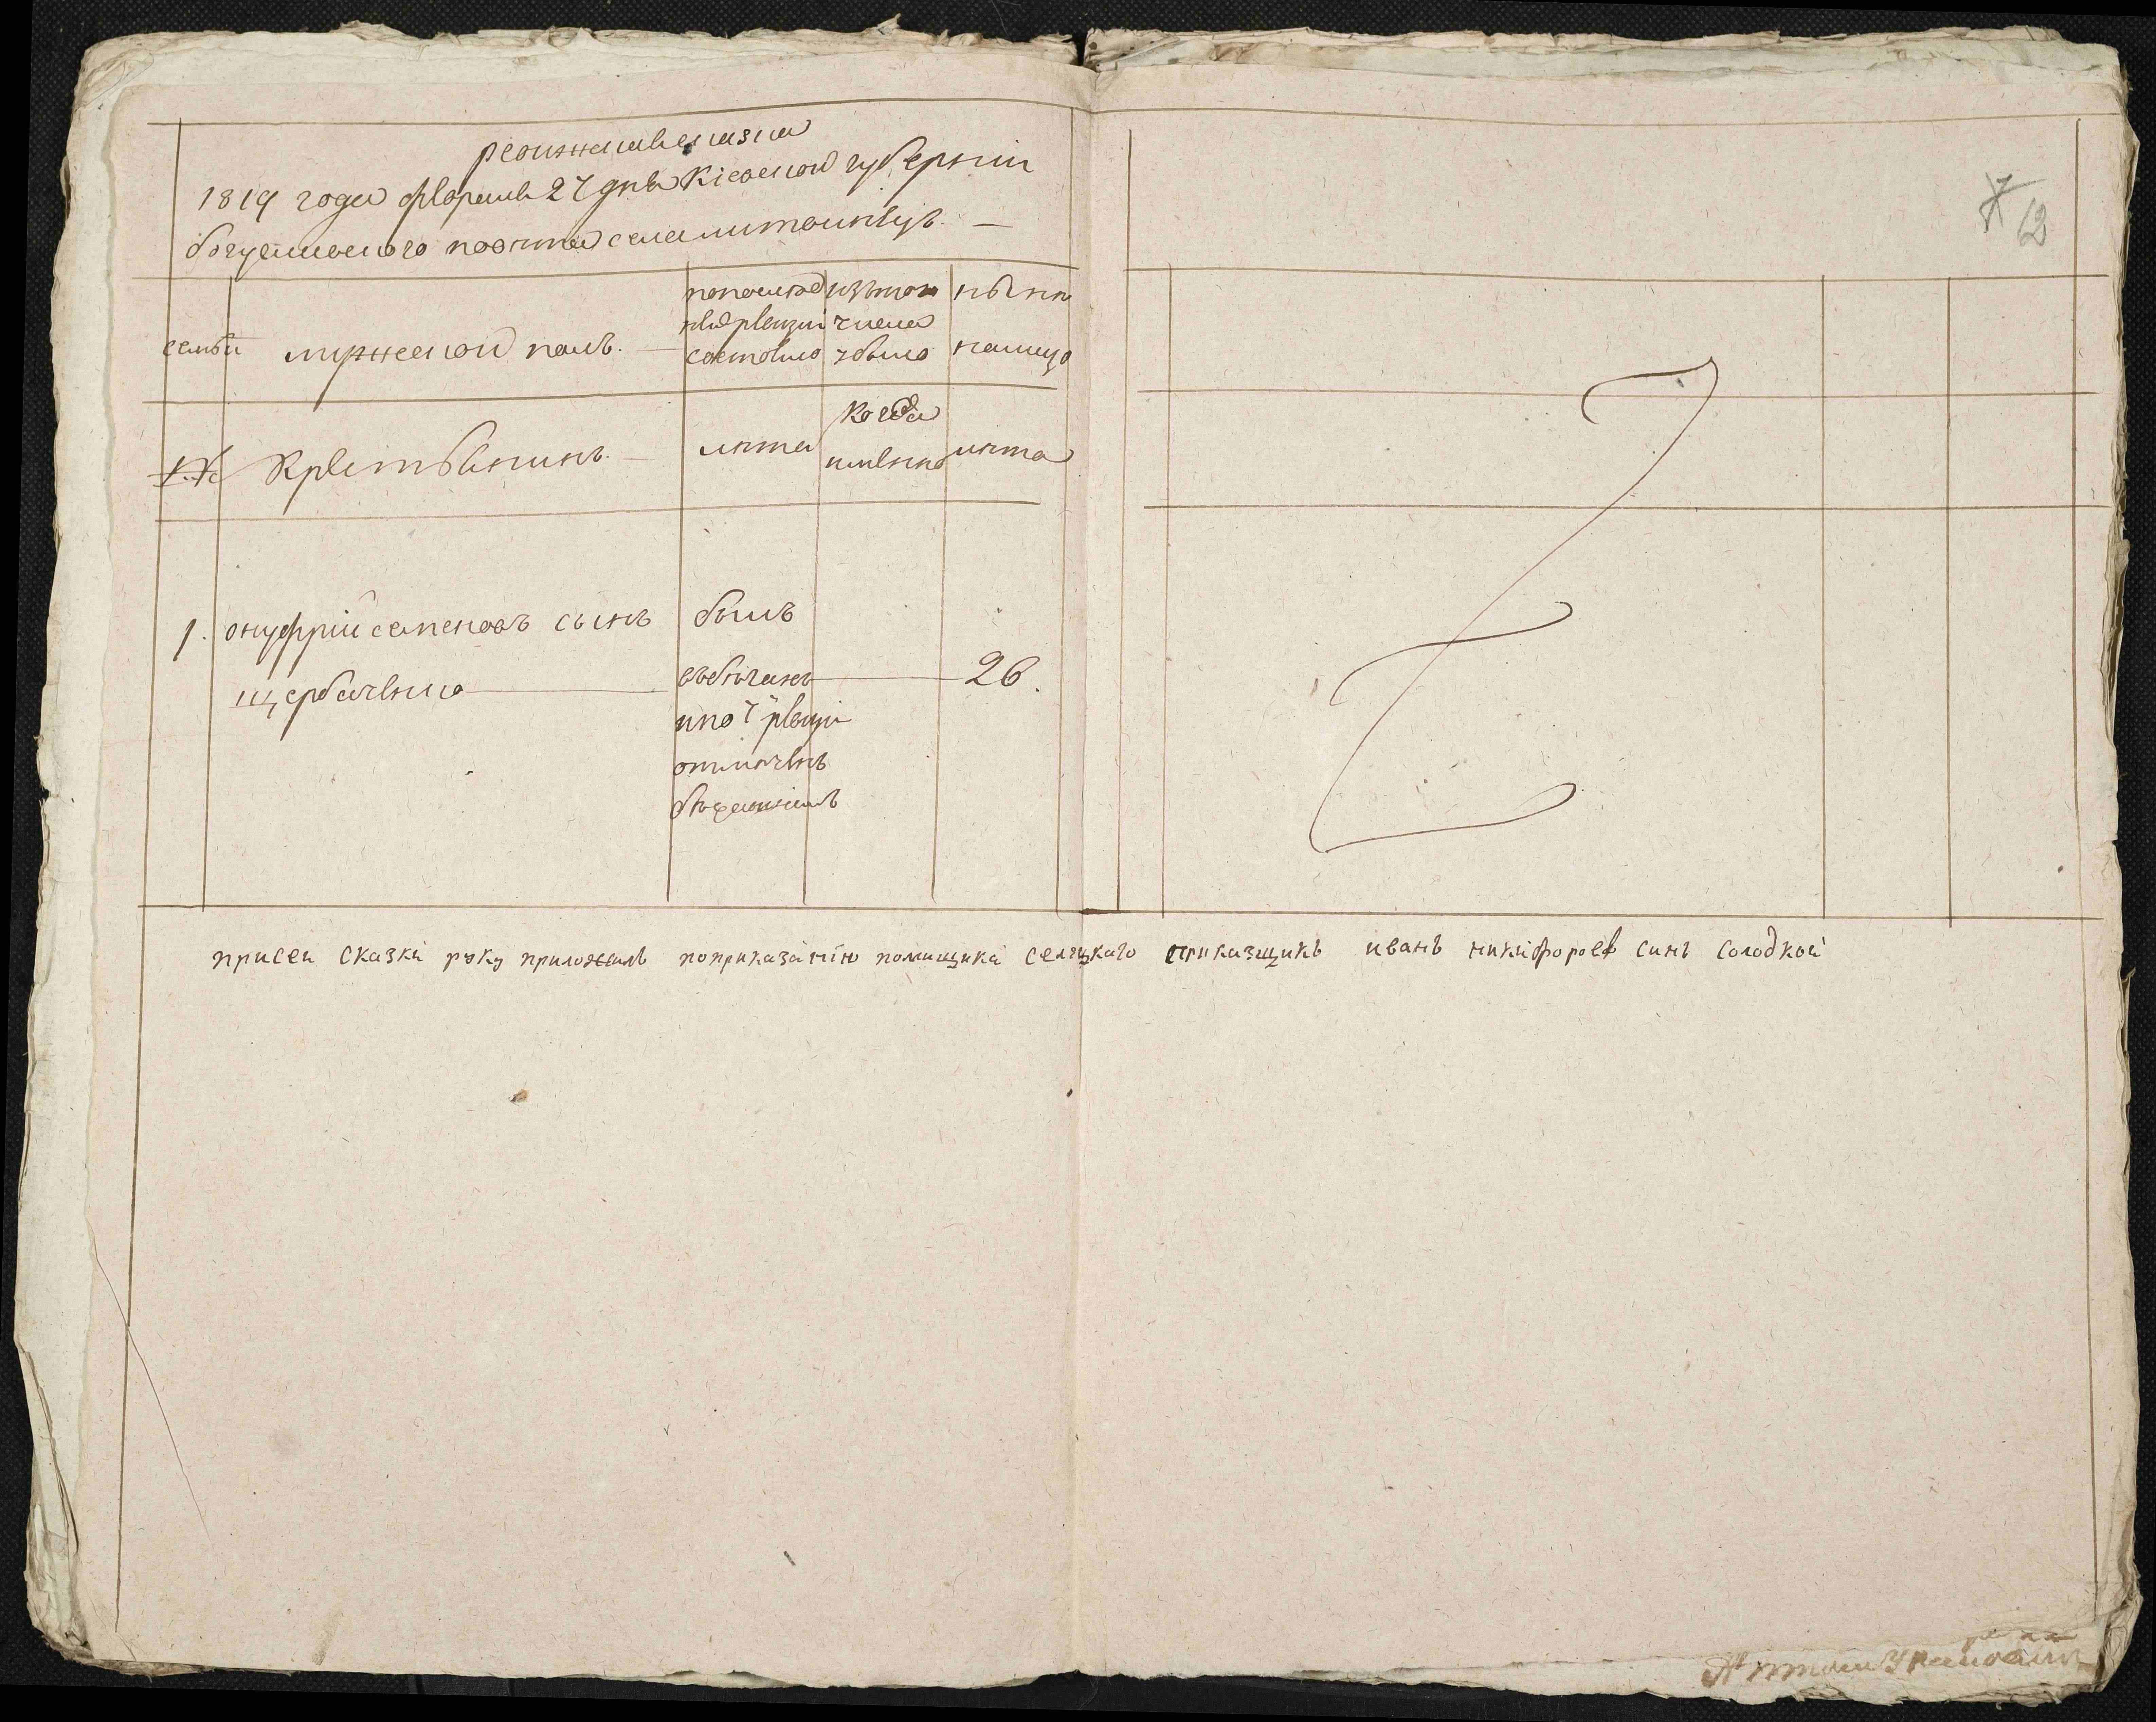 ревижская сказка
1819 года февраля 27 дня Кіевской губерніи
богуславского повита села митаинецъ. —
семьи
мужеской полъ. —
попослед
ней ревизіи
состояло
изътого
числа
збыло
ныне
налицо
№
Крестьянинъ. —
лета
когда
имянно
лета
1. онуфрій семеновъ сынъ
щербаченко
былъ
въбегахъ
ипо 7 ревизи
отмеченъ
бежавшимъ
26.
7
12
присеи сказки руку приложилъ поприказанію помищика селецкаго приказщикъ иванъ никифоровъ синъ солодкой